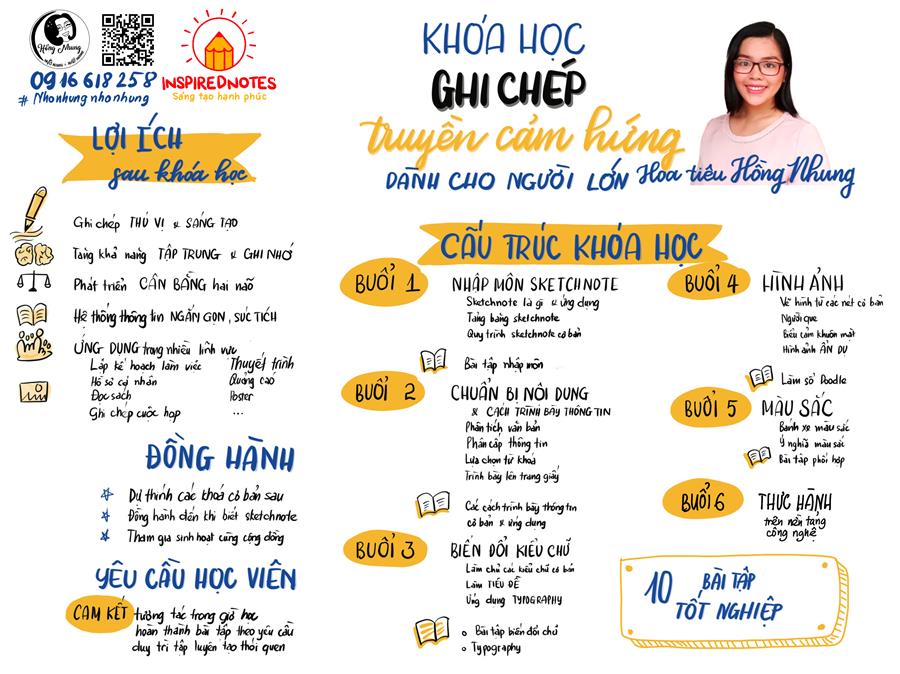 Hồng Nhung
0916618258
# Nhonhung nhonhung
INSPIREDNOTES
Sáng tạo hạnh phúc
KHÓA HỌC
GHI CHÉP
truyền cảm hứng
DÀNH CHO NGƯỜI LỚN
Hoa tiêu Hồng Nhung
LỢI ÍCH
sau khóa học
Ghi chép THÚ VỊ & SÁNG TẠO
Tăng khả năng TẬP TRUNG & GHI NHỚ
Phát triển CÂN BẰNG hai não
Hệ thống thông tin NGẮN GỌN, SÚC TÍCH
ỨNG DỤNG trong nhiều lĩnh vực
Lập kế hoạch làm việc
Hồ sơ cá nhân
Đọc sách
Ghi chép cuộc họp
Thuyết trình
Quảng cáo
Poster
...
ĐỒNG HÀNH
Dự thính các khoá cơ bản sau
Đồng hành đến khi biết sketchnote
Tham gia sinh hoạt cùng cộng đồng
YÊU CẦU HỌC VIÊN
CAM KẾT
tương tác trong giờ học
hoàn thành bài tập theo yêu cầu
duy trì tập luyện tạo thói quen
CẤU TRÚC KHÓA HỌC
BUỔI 1
NHẬP MÔN SKETCHNOTE
Sketchnote là gì & ứng dụng
Tảng băng sketchnote
Quy trình sketchnote cơ bản
Bài tập nhập môn
BUỔI 2
CHUẨN BỊ NỘI DUNG
& CÁCH TRÌNH BÀY THÔNG TIN
Phân tích văn bản
Phân cấp thông tin
Lựa chọn từ khoá
Trình bày lên trang giấy
Các cách trình bày thông tin
cơ bản & ứng dụng
BUỔI 3
BIẾN ĐỔI KIỂU CHỮ
Làm chủ các kiểu chữ cơ bản
Làm TIÊU ĐỀ
Ứng dụng TYPOGRAPHY
Bài tập biến đổi chữ
Typography
BUỔI 4
HÌNH ẢNH
Vẽ hình từ các nét cơ bản
Người que
Biểu cảm khuôn mặt
Hình ảnh ẨN DỤ
Làm sổ Doodle
BUỔI 5
MÀU SẮC
Bánh xe màu sắc
Ý nghĩa màu sắc
Bài tập phối hợp
BUỔI 6
THỰC HÀNH
trên nền tảng
công nghệ
10 BÀI TẬP
TỐT NGHIỆP